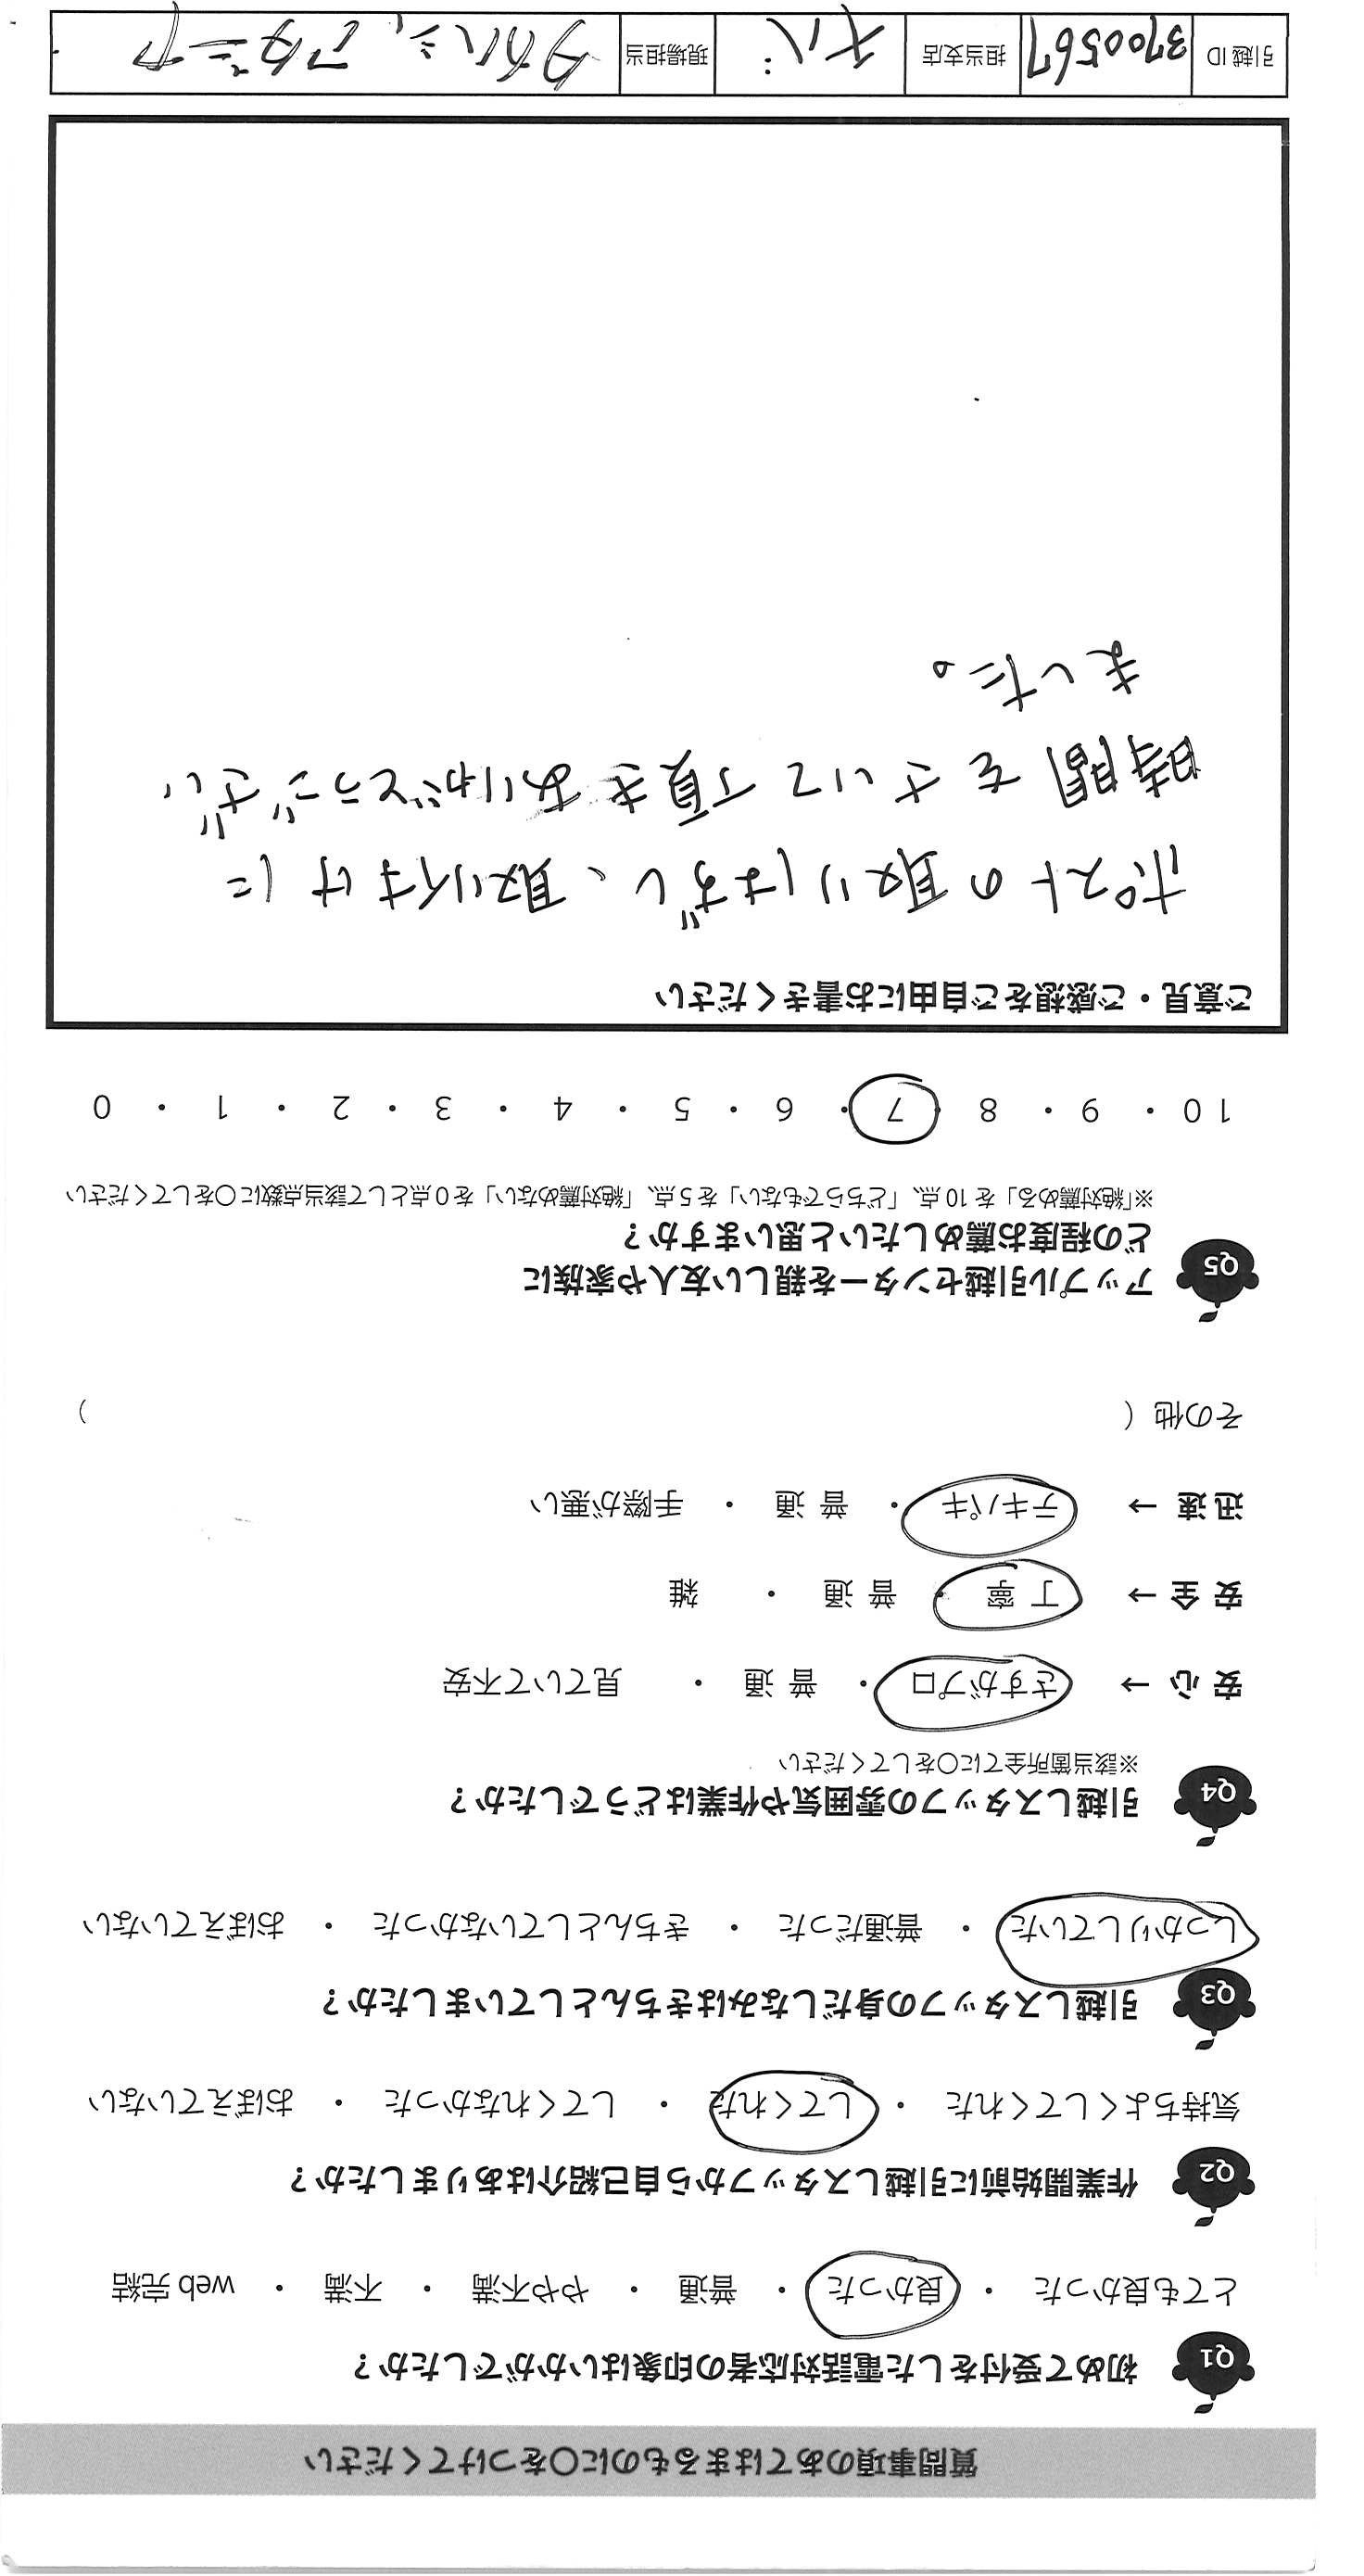 質問事項のあてはまるものに○をつけてください
Q1 初めて受付をした電話対応者の印象はいかがでしたか？
とても良かった ・ 良かった ・ 普通 ・ やや不満 ・ 不満 ・ web 完結
Q2 作業開始前に引越しスタッフから自己紹介はありましたか？
気持ちよくしてくれた ・ してくれた ・ してくれなかった ・ おぼえていない
Q3 引越しスタッフの身だしなみはきちんとしていましたか？
しっかりしていた ・ 普通だった ・ きちんとしていなかった ・ おぼえていない
Q4 引越しスタッフの雰囲気や作業はどうでしたか？
※該当箇所全てに○をしてください
安 心 → さすがプロ ・ 普 通 ・ 見ていて不安
安 全 → 丁 寧 ・ 普 通 ・ 雑
迅 速 → テキパキ ・ 普 通 ・ 手際が悪い
その他（ ）
Q5 アップル引越センターを親しい友人や家族に
どの程度お薦めしたいと思いますか？
※「絶対薦める」を 10 点、「どちらでもない」を 5 点、「絶対薦めない」を 0 点として該当点数に○をしてください
10 ・ 9 ・ 8 ・ 7 ・ 6 ・ 5 ・ 4 ・ 3 ・ 2 ・ 1 ・ 0
ご意見・ご感想をご自由にお書きください
ポストの取りはずし、取り付けに
時間をさいて頂きありがとうござい
ました。
引越 ID 3700567 担当支店 現場担当